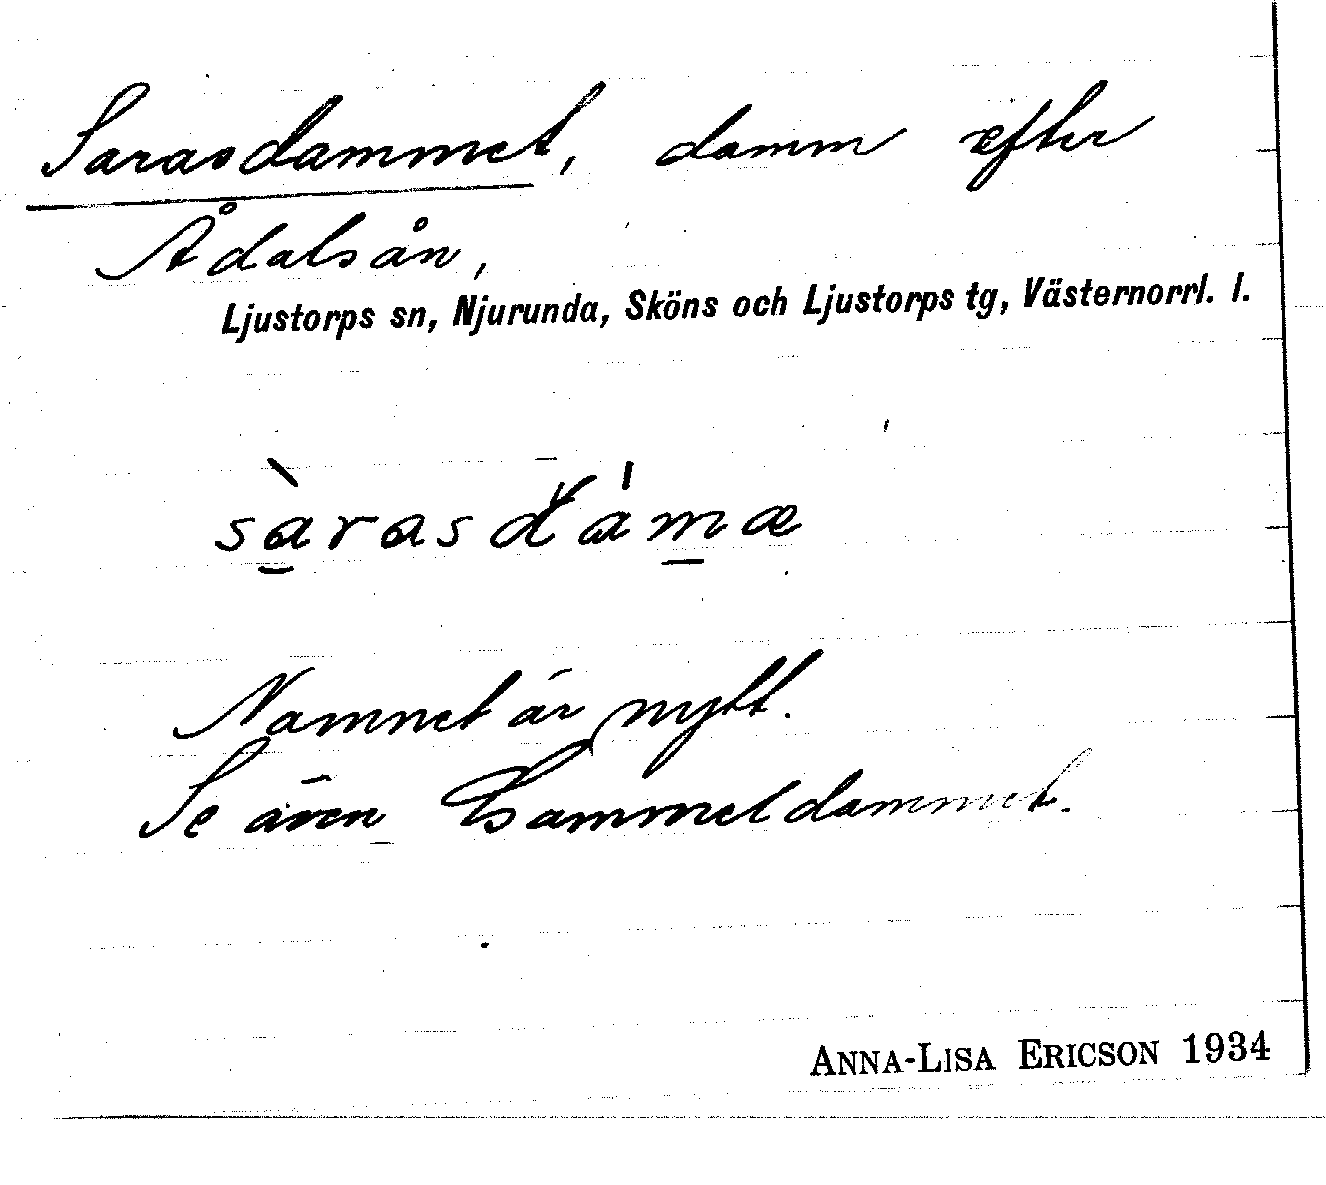 Sarasdammet, damm efter
Ådalsån,
Ljustorps sn, Njurunda, Sköns och Ljustorps tg, Västernorrl. l.
sàrasdámæ
Namnet är nytt.
Se även Gammeldammet.
ANNA-LISA ERICSON 1934